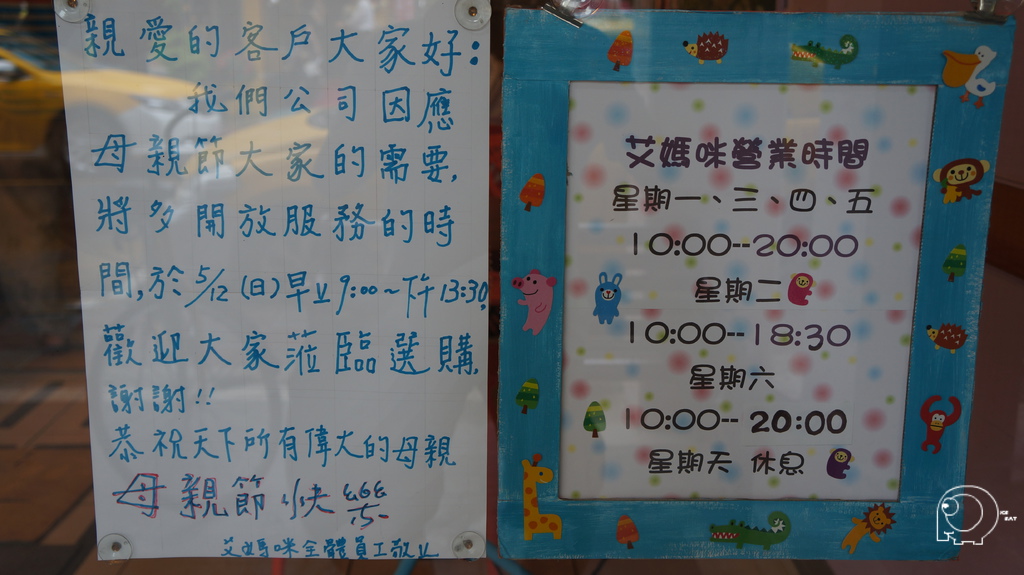 親愛的客戶大家好：
我們公司因應
母親節大家的需要，
將多開放服務的時
間，於5/12(日)早上9:00~下午13:30。
歡迎大家蒞臨選購，
謝謝!!
恭祝天下所有偉大的母親
母親節快樂
艾媽咪全體員工敬上
艾媽咪營業時間
星期一、三、四、五
10:00--20:00
星期二
10:00--18:30
星期六
10:00--20:00
星期天 休息
ICE
BAY